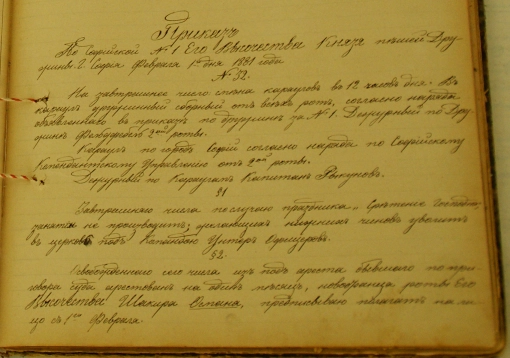 Приказъ
По Софийской № 1 Его Высочества Князя пешей Дру-
жины. Г. София Февраля 1го дня 1881 года
№ 32.
На завтрашнее число смена карауловъ въ 12 часовъ дня. Въ
караулъ дружинный отъ всехъ ротъ, согласно наряда
объявленнаго въ приказе по дружине за № 1. Дежурный по Дру-
жине 2ой роты.
Караулъ по городъ Софiи согласно наряда по Софийскому
Комендантскому Управлению отъ 2ой роты.
Дежурный по Карауламъ Капитанъ
§1
Завтрашняго числа по случаю праздника „Сретение Господне"
занятия не производить; желающихъ нижнихъ чиновъ уволить
въ церковь подъ командою Унтеръ Офицеровъ.
§2.
сего числа изъ подъ ареста бывшаго по при-
говора суда на одинъ месяцъ, новобранца роты Его
Высочества Шакира Османа, предписываю полагать на ли-
цо съ 1го Февраля.